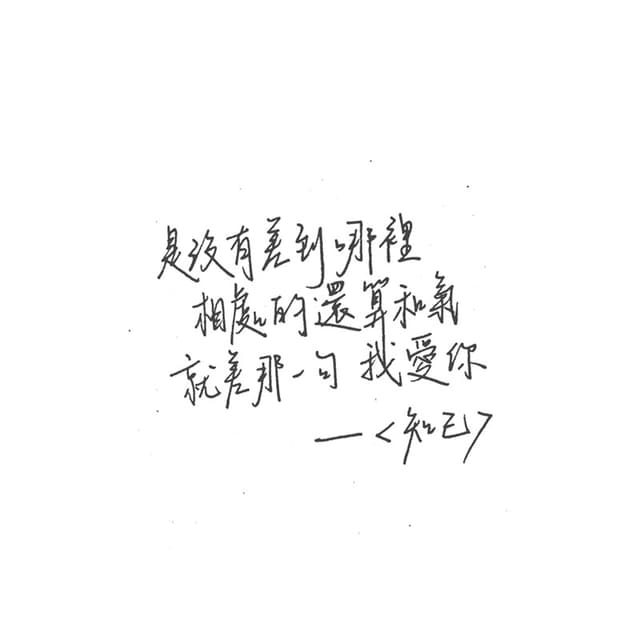 是沒有差到哪裡
相處的還算和氣
就差那一句 我愛你
—<知己>